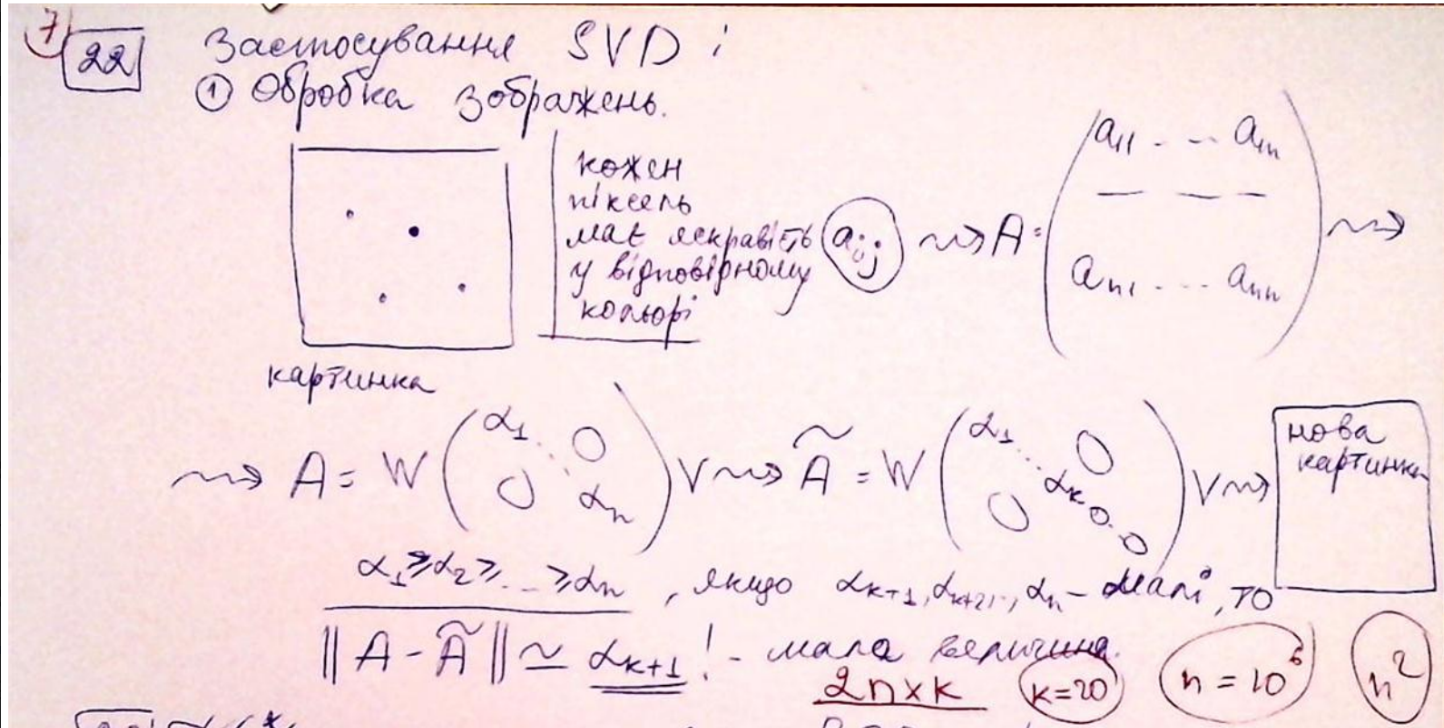 7
22 Застосування SVD :
① Обробка зображень.
кожен
піксель
має яскравість a_ij ⇝ A = ( a_11 ... a_1n — — — a_n1 ... a_nn ) ⇝
у відповідному
кольорі
картинка
⇝ A = W ( α_1 ... 0 0 α_n ) V ⇝ Ã = W ( α_1 ... 0 α_k 0 0 0 ) V ⇝ нова картинка
α_1 ≥ α_2 ≥ ... ≥ α_n , якщо α_k+1, α_k+2, .., α_n – малі, то
|| A - Ã || ≃ α_k+1 ! - мала величина.
2n×k k=20 n = 10^6 n^2